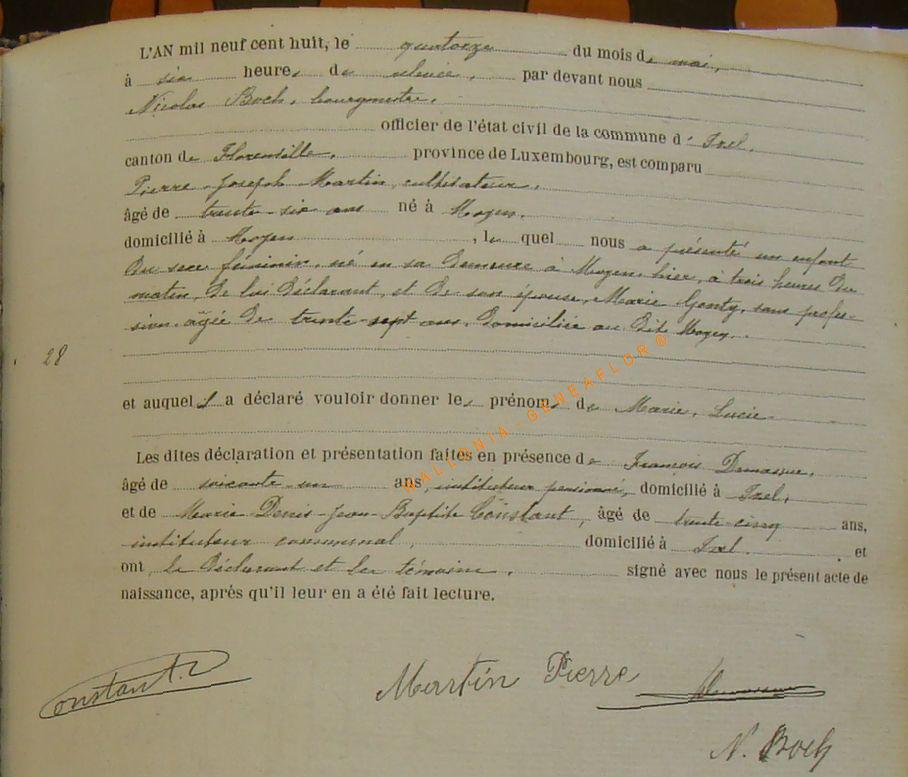 L'AN mil neuf cent huit, le quatorze du mois de mai,
à six heures de relevée, par devant nous
Nicolas Boch, bourgmestre,
officier de l'état civil de la commune d'Izel,
canton de Florenville, province de Luxembourg, est comparu
Pierre-Joseph Martin, cultivateur,
âgé de trente-six ans né à Moyen,
domicilié à Moyen, lequel nous a présenté un enfant
du sexe féminin, né en sa demeure à Moyen, hier, à trois heures du
matin, de lui déclarant, et de son épouse, Marie Genty, sans profes-
sion, âgée de trente-sept ans, domiciliée au dit Moyen.
28
et auquel il a déclaré vouloir donner les prénoms de Marie, Lucie
Les dites déclaration et présentation faites en présence de François
âgé de soixante un ans, instituteur pensionné, domicilié à Izel,
et de Marie-Denis-Jean-Baptiste Constant, âgé de trente-cinq ans,
instituteur communal, domicilié à Izel. et
ont le déclarant et les témoins, signé avec nous le présent acte de
naissance, après qu'il leur en a été fait lecture.
Constant. Martin Pierre
N. Boch
WALLONIA-GENEAFLOR ©